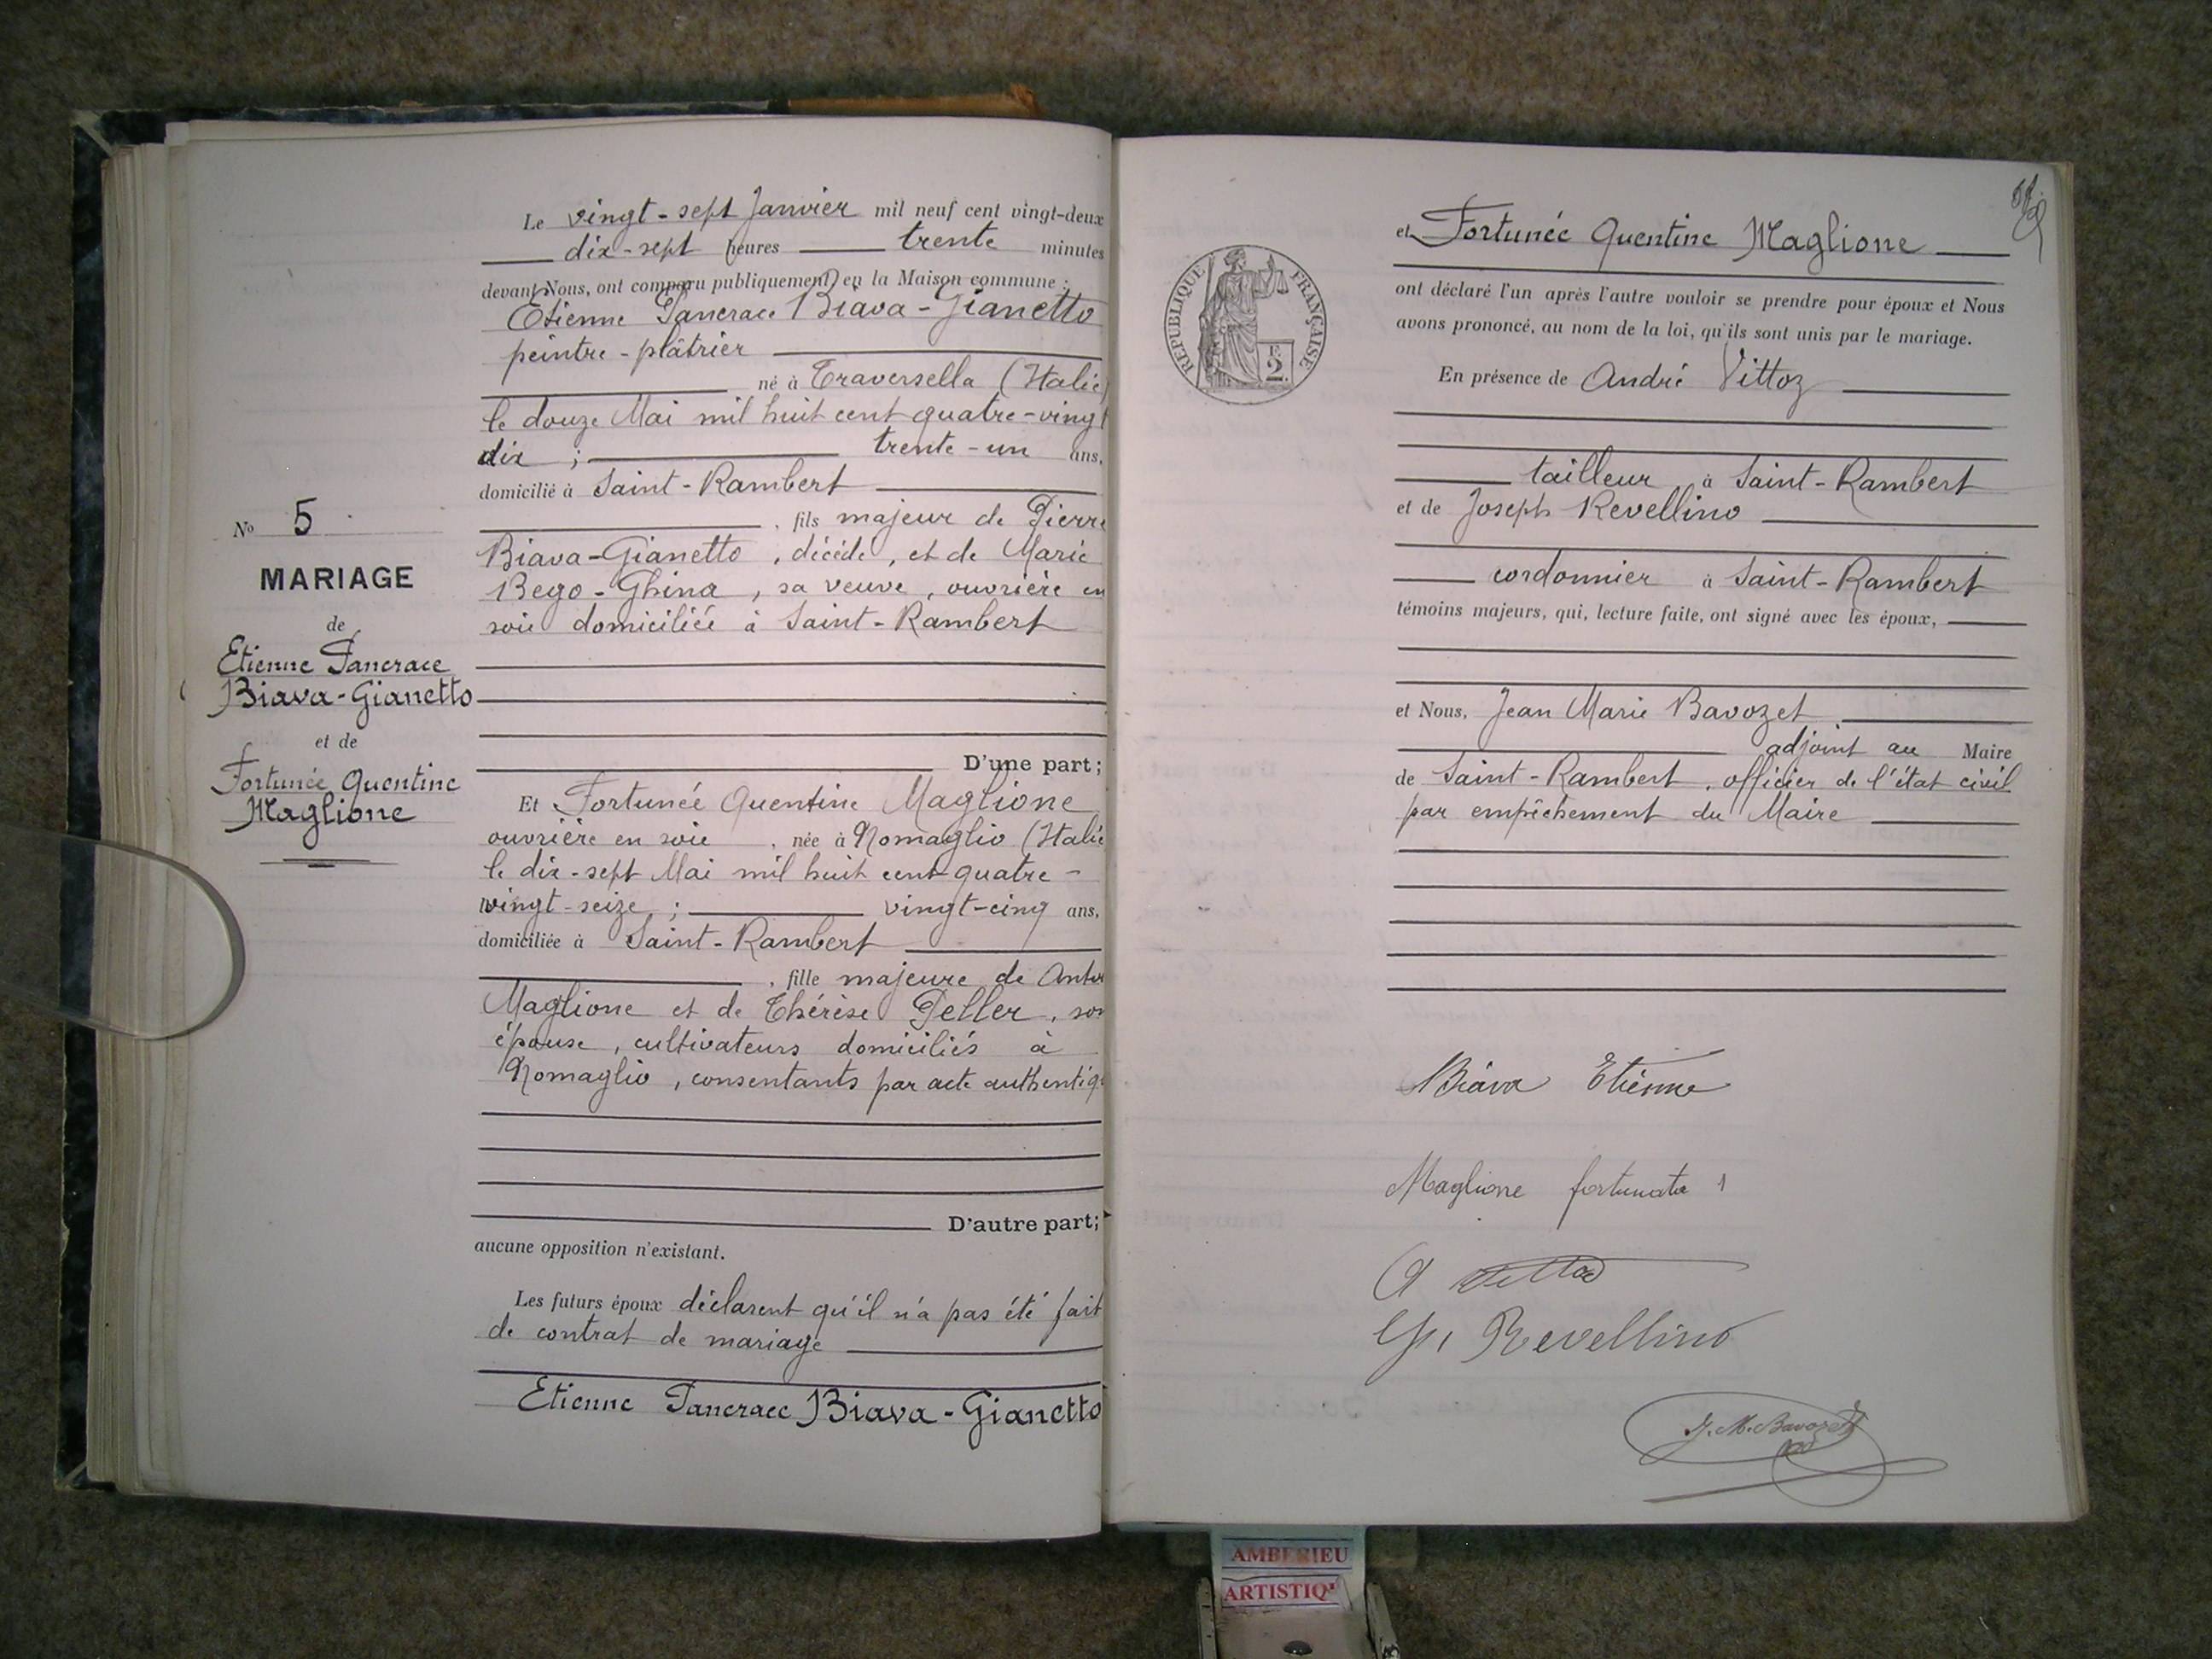 N° 5
MARIAGE
de
Etienne Pancrace
Biava-Gianetto
et de
Fortunée Quentine
Maglione
Le vingt-sept Janvier mil neuf cent vingt-deux
dix-sept heures trente minutes
devant Nous, ont comparu publiquement en la Maison commune :
Etienne Pancrace Biava-Gianetto
peintre-plâtrier
né à Traversella (Italie)
le douze Mai mil huit cent quatre-vingt
dix ; trente-un ans,
domicilié à Saint-Rambert
, fils majeur de Pierre
Biava-Gianetto, décédé, et de Marie
Bego-Ghina, sa veuve, ouvrière en
soie domiciliée à Saint-Rambert
D'une part ;
Et Fortunée Quentine Maglione
ouvrière en soie , née à Nomaglio (Italie
le dix-sept Mai mil huit cent quatre-
vingt-seize ; vingt-cinq ans,
domiciliée à Saint-Rambert
, fille majeure de
Maglione et de Thérèse Peller, son
épouse, cultivateurs domiciliés à
Nomaglio, consentants par acte authentiq
D'autre part;
aucune opposition n'existant.
Les futurs époux déclarent qu'il n'a pas été fait
de contrat de mariage
Etienne Pancrace Biava-Gianetto
et Fortunée Quentine Maglione
ont déclaré l'un après l'autre vouloir se prendre pour époux et Nous
avons prononcé, au nom de la loi, qu'ils sont unis par le mariage.
RÉPUBLIQUE FRANÇAISE
F. 2
En présence de André Vittoz
tailleur à Saint-Rambert
et de Joseph Revellino
cordonnier à Saint-Rambert
témoins majeurs, qui, lecture faite, ont signé avec les époux,
et Nous, Jean Marie Bavozet
adjoint au Maire
de Saint-Rambert, officier de l'état civil
par empêchement du Maire
Biava Etienne
Maglione fortunata
A Vittoz
Revellino
J. M. Bavozet
AMBERIEU
ARTISTIQ